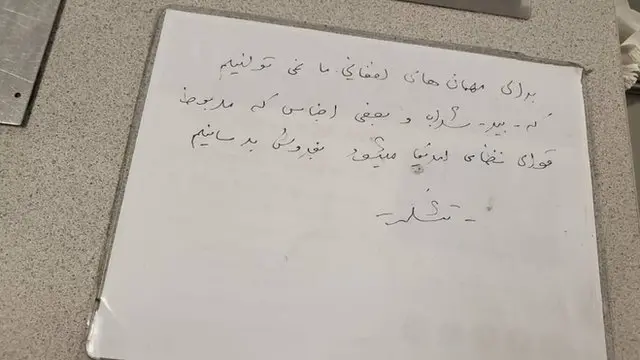 برای مهمان های افغانی ما نمی توانیم
که - بیر - شراب و بعضی اجناس که مربوط
قوای نظامی امریکا میشود بفروش برسانیم
- تشکر -